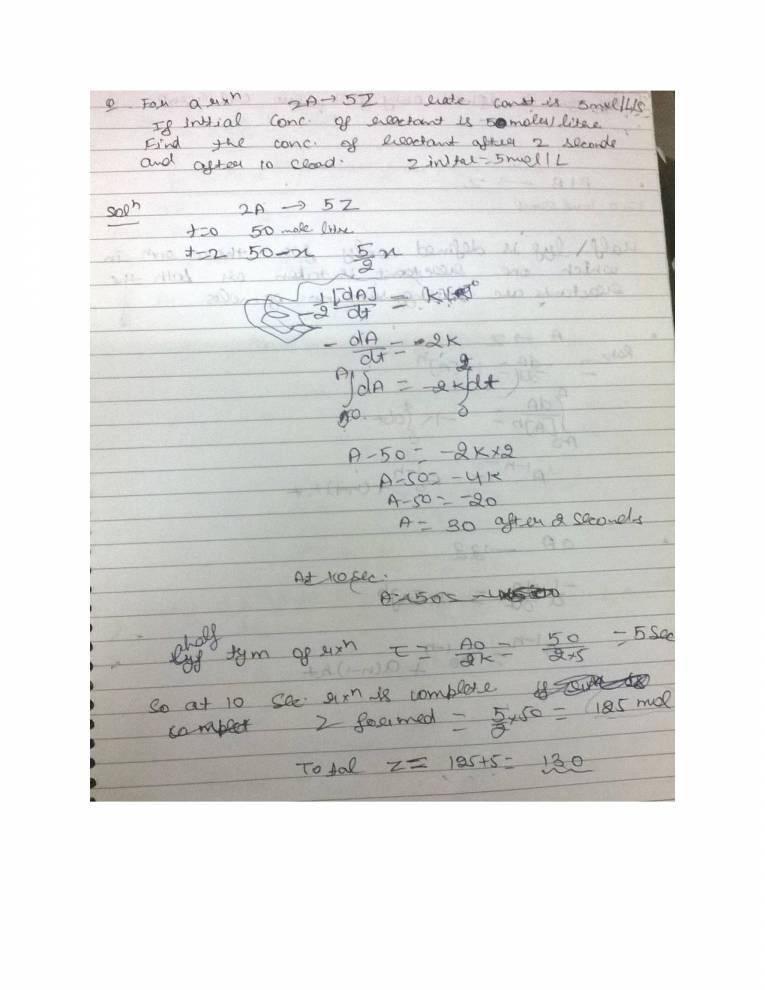 Q For a rxn 2A → 5Z rate const is 5mol/L/s
If initial conc. of reactant is 50 moles/litre
Find the conc. of reactant after 2 seconds
and after 10 Z initial = 5mol/L
Soln 2A → 5Z
t=0 50 mole litre
t=2 50-x 5/2 x
-1/2 [dA]/dt = K[A]°
-dA/dt = 2K
A∫A0 dA = -2K 2∫0 dt
A-50 = -2K×2
A-50= -4K
A-50 = -20
A = 30 after 2 seconds
At 10 sec.
A-50=
half lyf tym of rxn τ = A0/2K = 50/2×5 = 5 sec
so at 10 sec. rxn is complete
Z formed = 5/2×50 = 125 mol
Total Z = 125+5= 130